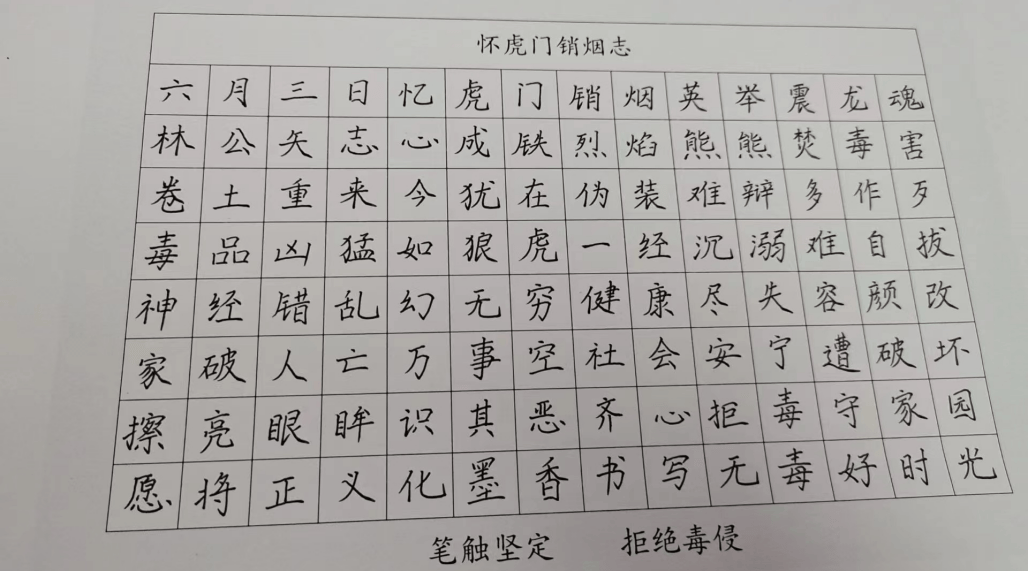 怀虎门销烟志
六月三日忆虎门销烟英举震龙魂
林公矢志心成铁烈焰熊熊焚毒害
卷土重来今犹在伪装难辩多作歹
毒品凶猛如狼虎一经沉溺难自拔
神经错乱幻无穷健康尽失容颜改
家破人亡万事空社会安宁遭破坏
擦亮眼眸识其恶齐心拒毒守家园
愿将正义化墨香书写无毒好时光
笔触坚定 拒绝毒侵